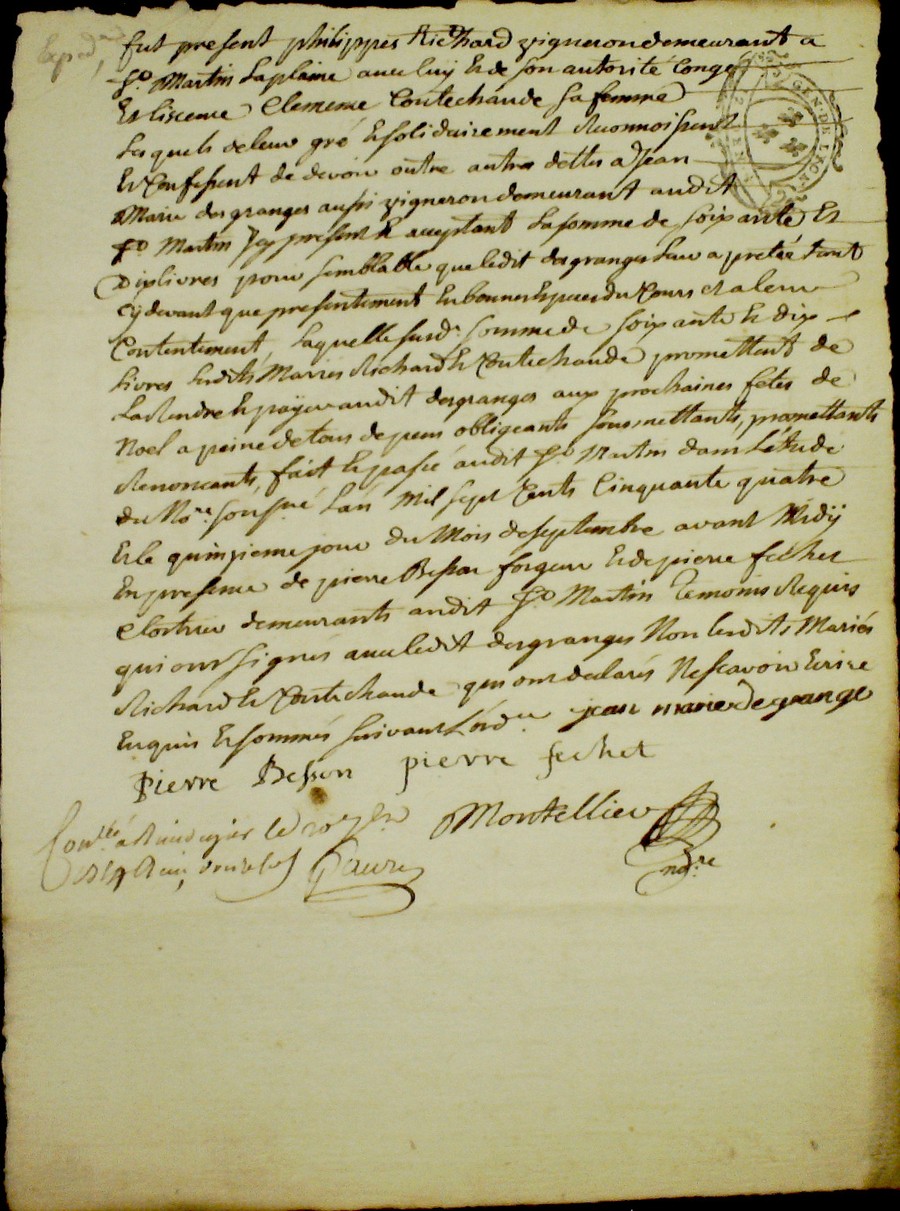 Exped
fut present philippes Richard vigneron demeurant a
St. Martin La plaine avec luy et de son autorité Congé
Et licence Clemence Contechaude sa femme
Lesquels de leur gré et solidairement Reconnoissent
Et Confessent de devoir outre autres dettes a Jean
Marie desgranges aussi vigneron demeurant audit
St. Martin Icy present et acceptant La somme de soixante Et
Dix livres pour semblable que ledit desgranges Leur a pretée tant
Cy devant que presentement En bonnes Especes du Cours et a leur
Contentement, Laquelle susd. somme de soixante et dix
Livres Lesdits Mariés Richard et Contechaude promettent de
La Rendre et payer audit desgranges aux prochaines fetes de
Noel a peine de tous depens obligeants soumettants, promettants
Renoncants, fait et passé audit St. Martin dans L'étude
du No.re soussné L'an Mil sept Cents Cinquante quatre
Et le quinzieme jour du Mois de septembre avant Midÿ
En presence de pierre Besson forgeur Et de pierre fechet
Cloutier demeurants audit St. Martin Temoins Requis
qui ont signés avec ledit desgranges Non lesdits Mariés
Richard et Contechaude qui ont declarés Ne scavoir Ecrire
Enquis et sommés suivant L'ord.ce jean marie Degrange
Pierre Besson pierre fechet
Montellier
no.re
Con.llé a Rivedegier le 20 7bre
1754 Reçu douze sols Faure
GEN DE LYON